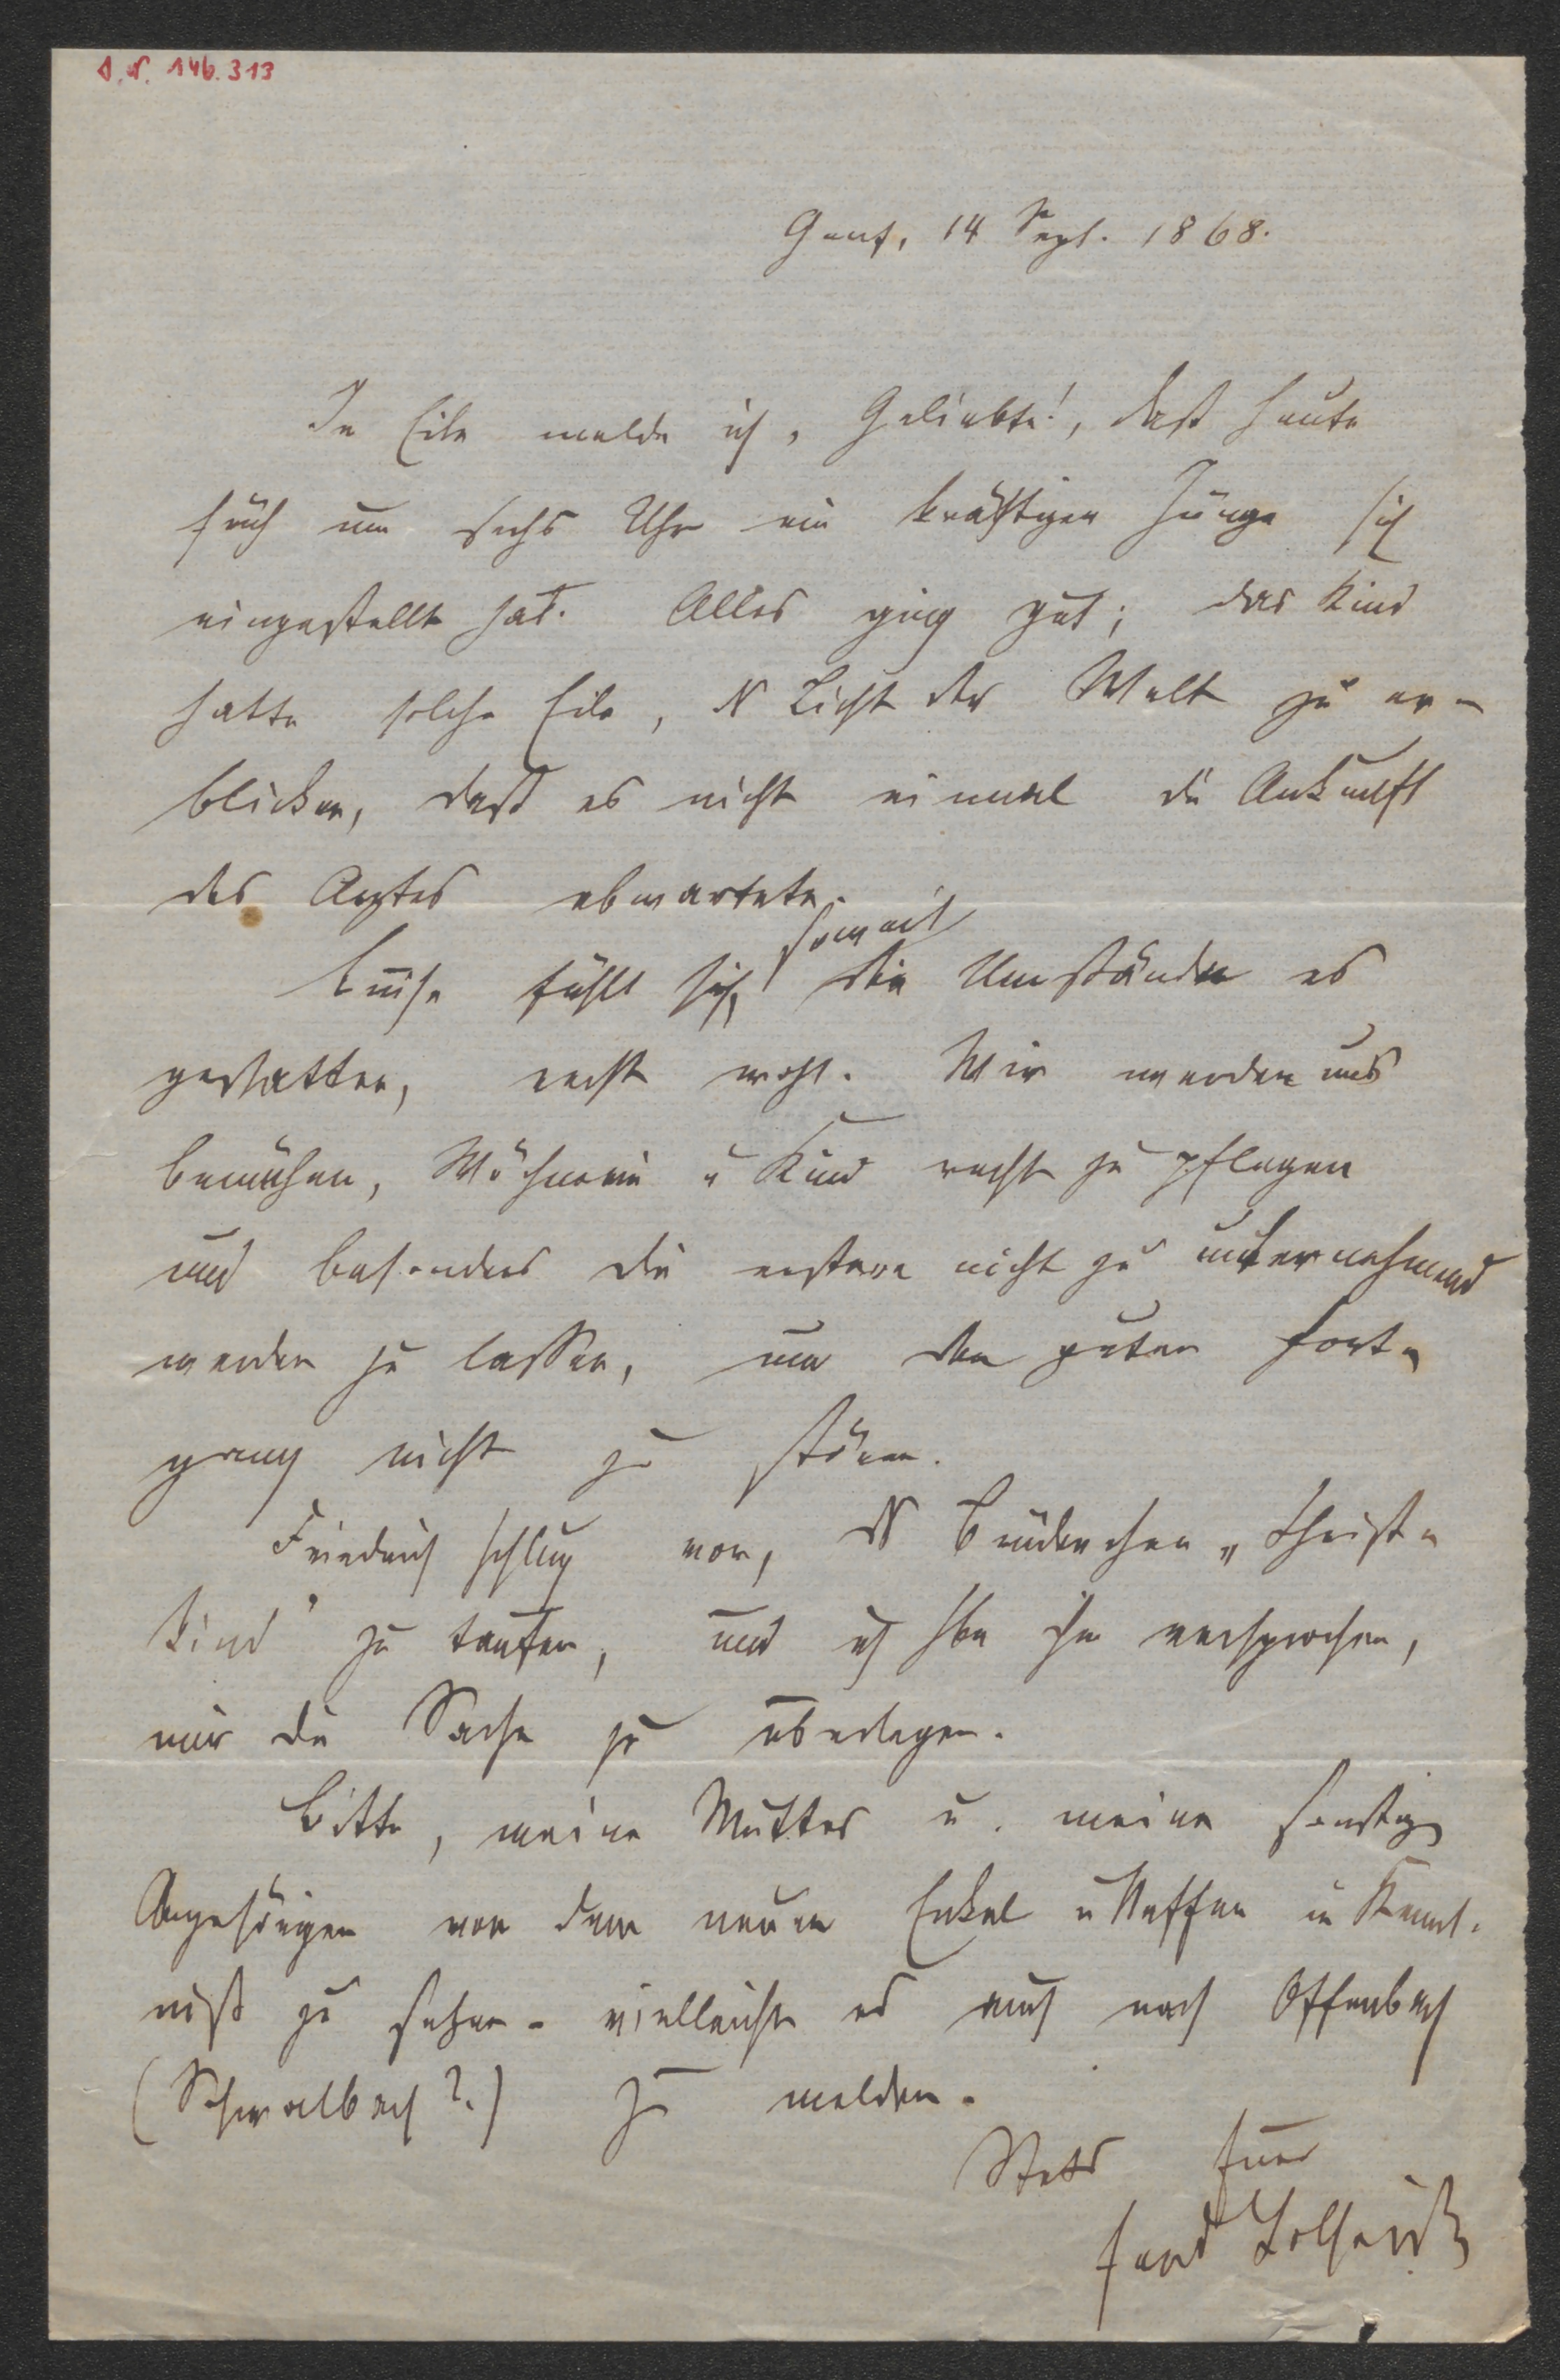 I.N. 146.313
Genf, 14 Sept. 1868.
In Eile melde ich, Geliebte!, daß heute
früh um sechs Uhr ein kräftiger Junge sich
eingestellt hat. Alles ging gut; das Kind
hatte solche Eile, das Licht der Welt zu er-
blicken, daß es nicht einmal die Ankunft
des Arztes abwartete.
soweit
Luise fühlt sich, die Umstände es
gestatten, recht wohl. Wir werden uns
bemühen, Wöchnerin u Kind recht zu pflegen
und besonders die erstere nicht zu unternehmend
werden zu lassen, um den guten Fort-
gang nicht zu stören.
Friedrich schlug vor, das Brüderchen „Christ-
kind" zu taufen, und ich habe ihm versprochen,
mir die Sache zu überlegen.
Bitte, meine Mutter u. meine sonstigen
Angehörigen von dem neuen Enkel u Neffen in Kennt-
niß zu setzen - vielleicht es auch nach Offenbach
(Schwalbach?) zu melden.
Stets Euer